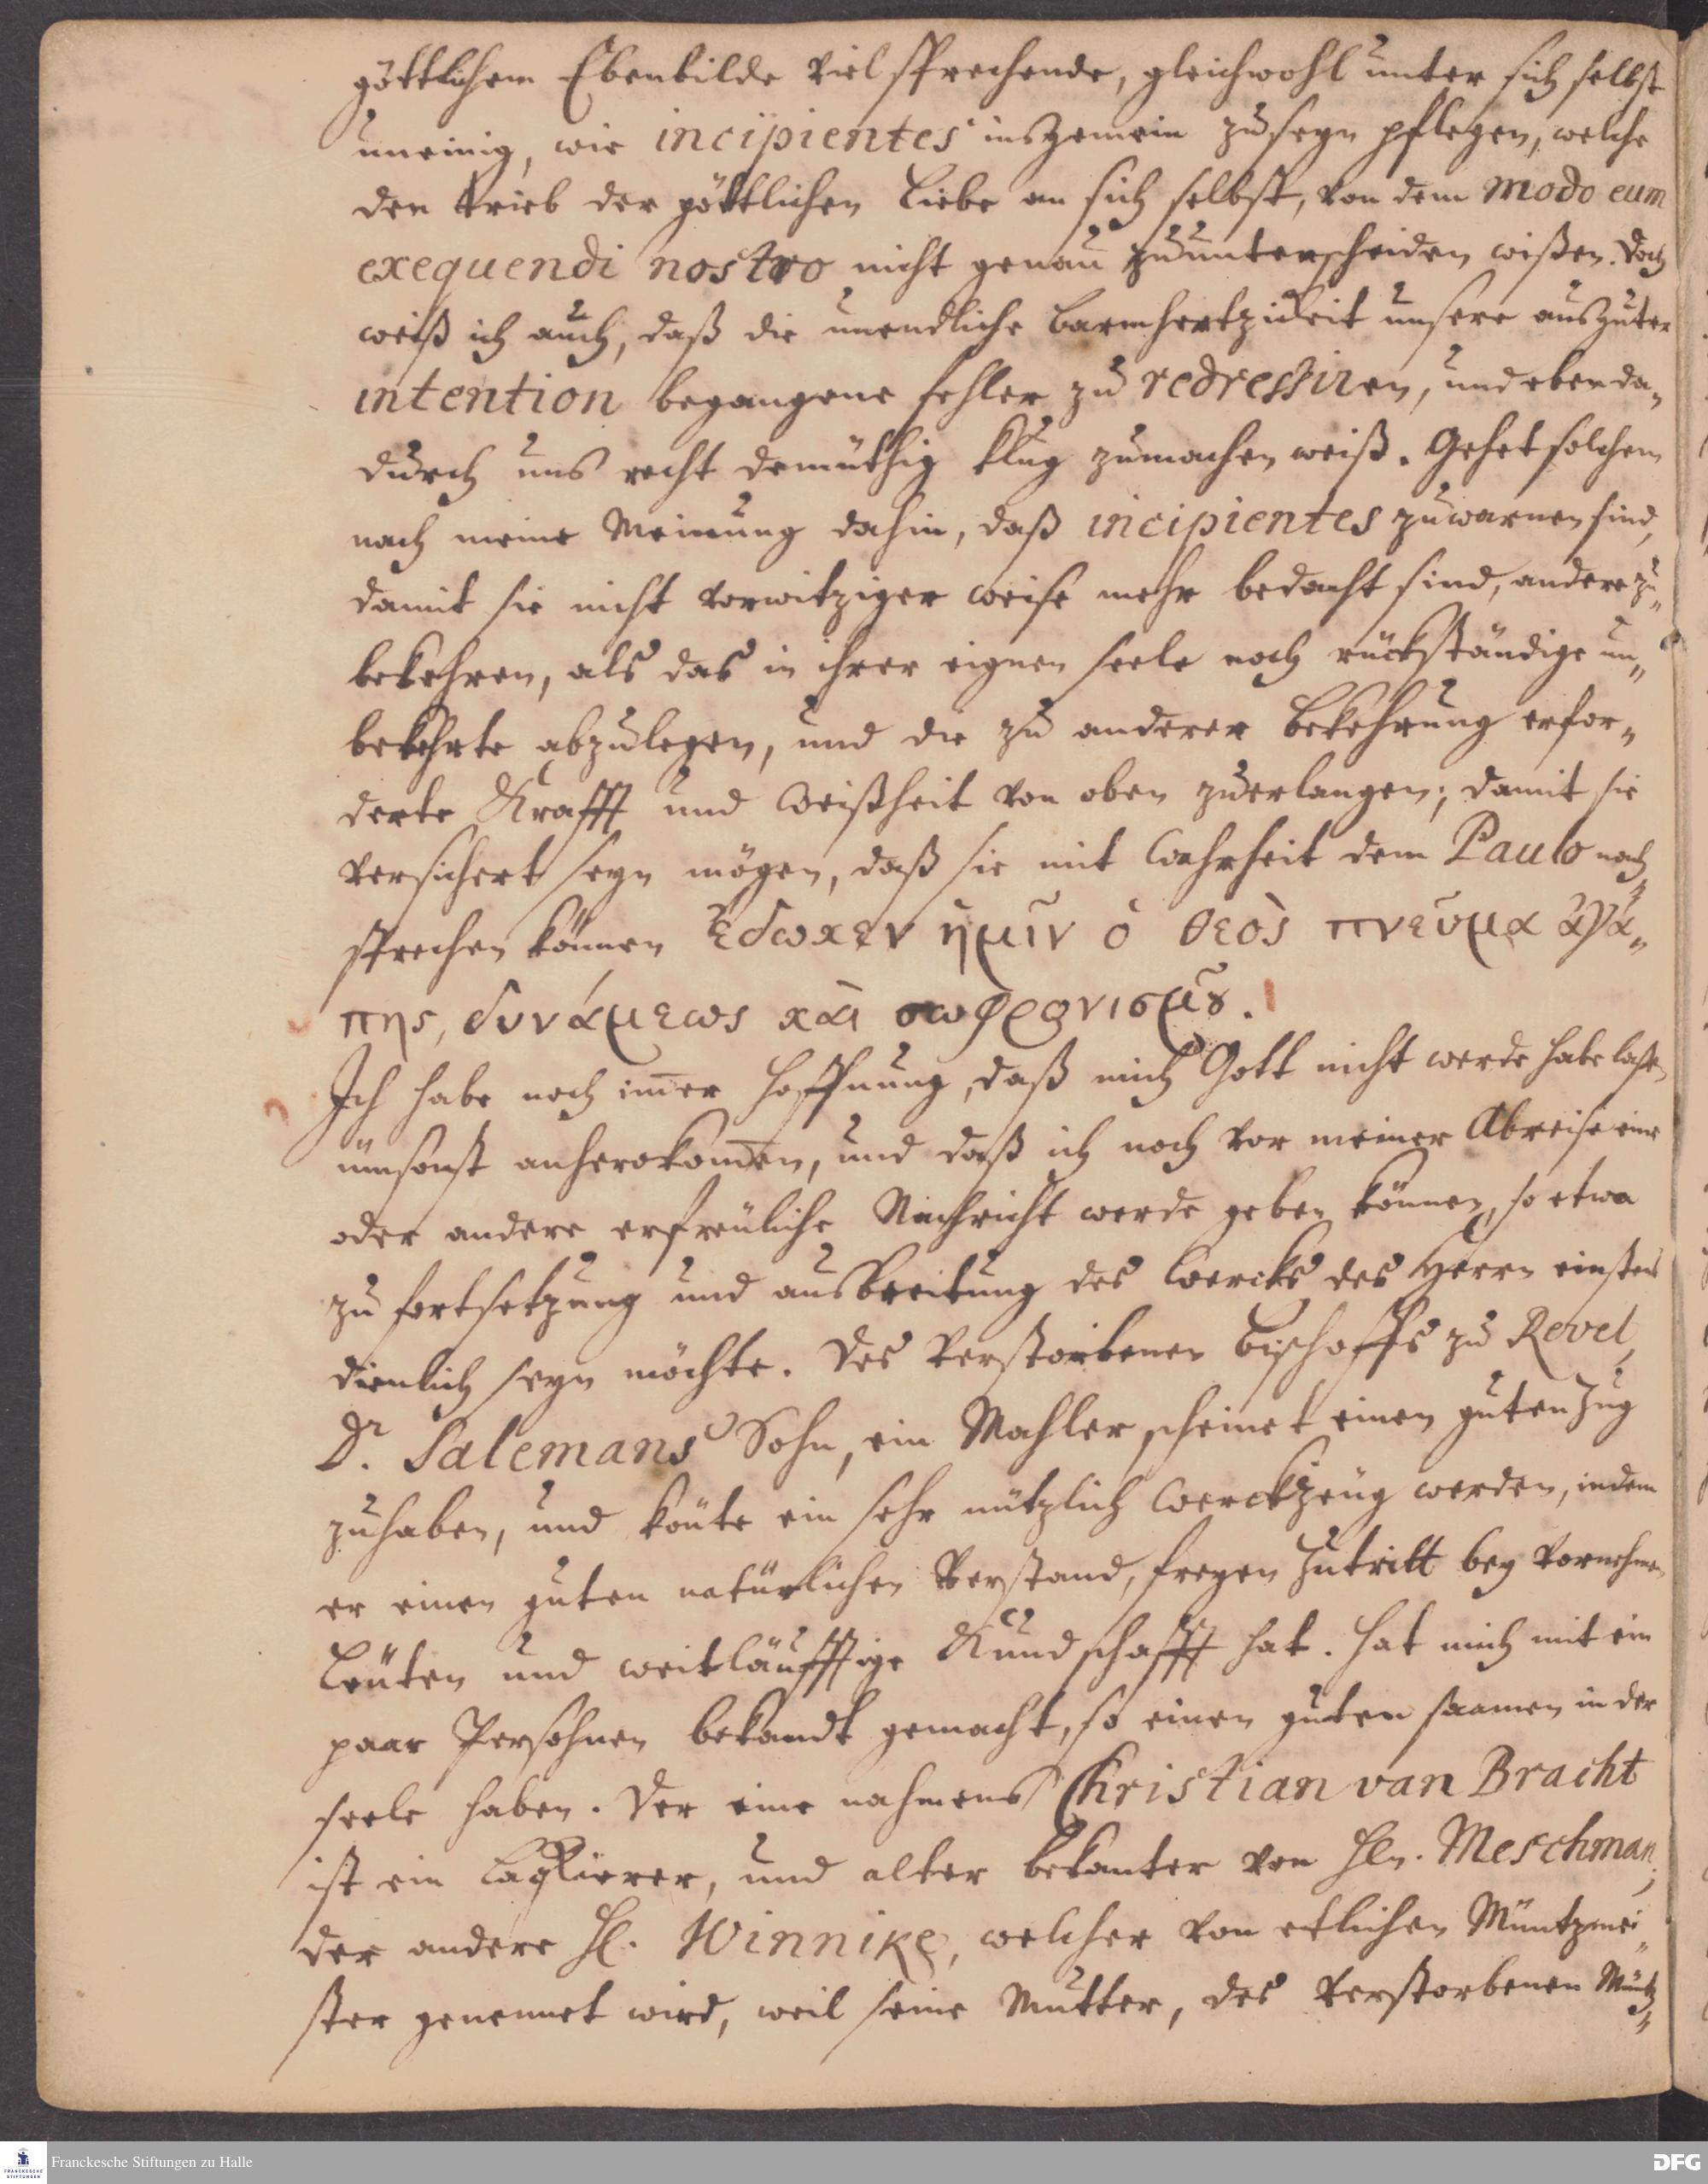 göttlichem Ebenbilde viel sprechende, gleichwohl unter sich selbst
uneinig, wie incipientes insgemein zuseyn pflegen, welche
den trieb der göttlichen Liebe an sich selbst, von dem modo eum
exequendi nostro nicht genau zuunterscheiden wißen. Doch
weiß ich auch, daß die unendliche barmhertzickeit unsere aus guter
intention begangene fehler zu redressiren, und eben da„
durch uns recht demüthig klug zumachen weiß. Gehet solchem
nach meine Meinung dahin, daß incipientes zuwarnen sind,
damit sie nicht vorwitziger weise mehr bedacht sind, andere zu„
bekehren, als das in ihrer eignen seele noch rückständige un„
bekehrte abzulegen, und die zu anderer bekehrung erfor„
derte Krafft und Weißheit von oben zuerlangen; damit sie
versichert seyn mögen, daß sie mit Wahrheit dem Paulo nach„
sprechen können ἔδωκεν ἡμῖν ὁ θεὸς πνεῦμα ἀγά„
πης, δυνάμεως καὶ σωφρονισμȣ͂.
Ich habe noch im̅er Hoffnung, daß mich Gott nicht werde habe laße
ümsonst anherokom̅en, und daß ich noch vor meiner Abreise eine
oder andere erfreüliche Nachricht werde geben können, so etwa
zu fortsetzung und ausbreitung des Wercks des Herrn einstens
dienlich seyn möchte. Des verstorbenen Bischoffs zu Revel,
Dr. Salemans Sohn, ein Mahler, scheinet einen guten Zug
zuhaben, und könte ein sehr nützlich Werckzeüg werden, indem
er einen guten natürlichen Verstand, freyen Zutritt bey vornehmen
Leüten und weitläufftige Kundschafft hat. Hat mich mit ein
paar Persohnen bekandt gemacht, so einen guten saamen in der
seele haben. Der eine nahmens Christian van Bracht
ist ein Laqkierer, und alter bekanter von Hln. Meschman,
der andere Hl. Winnike, welcher von etlichen Müntzmei„
ster genennet wird, weil seine Mutter, des verstorbenen Müntz„
Franckesche Stiftungen zu Halle
FRANCKESCHE STIFTUNGEN
DFG